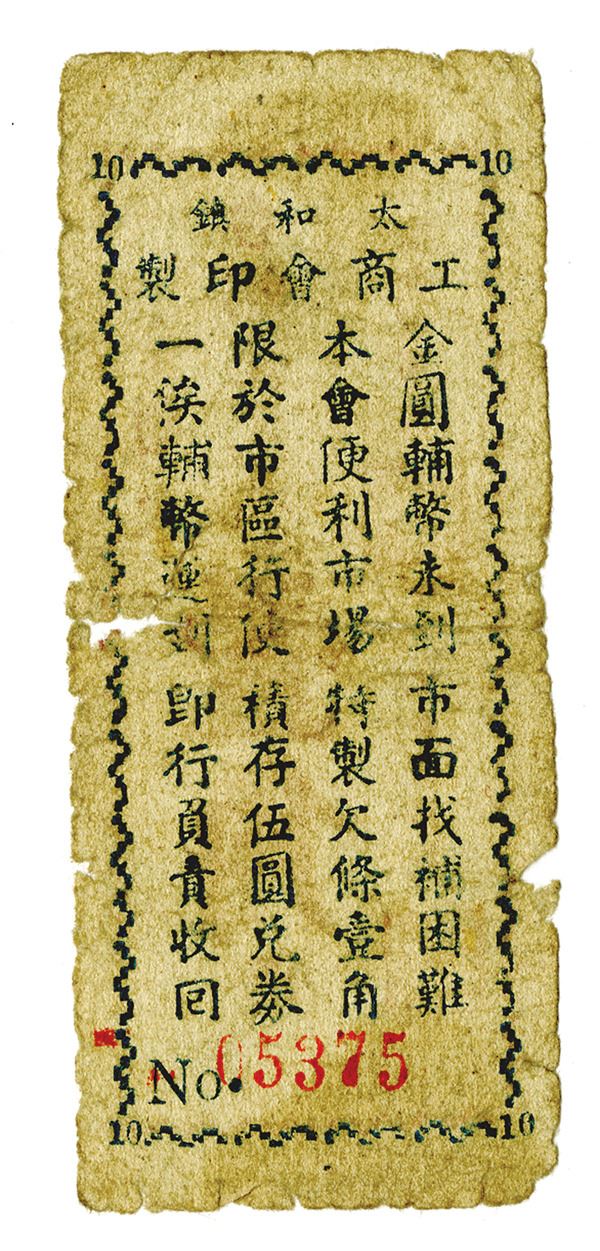 10
10
太和鎮
工商會印製
金圓輔幣未到市面找補困難
本會便利市場特製欠條壹角
限於市區行使積存伍圓兌券
一俟輔幣運到即行負責收回
No. 05375
10
10